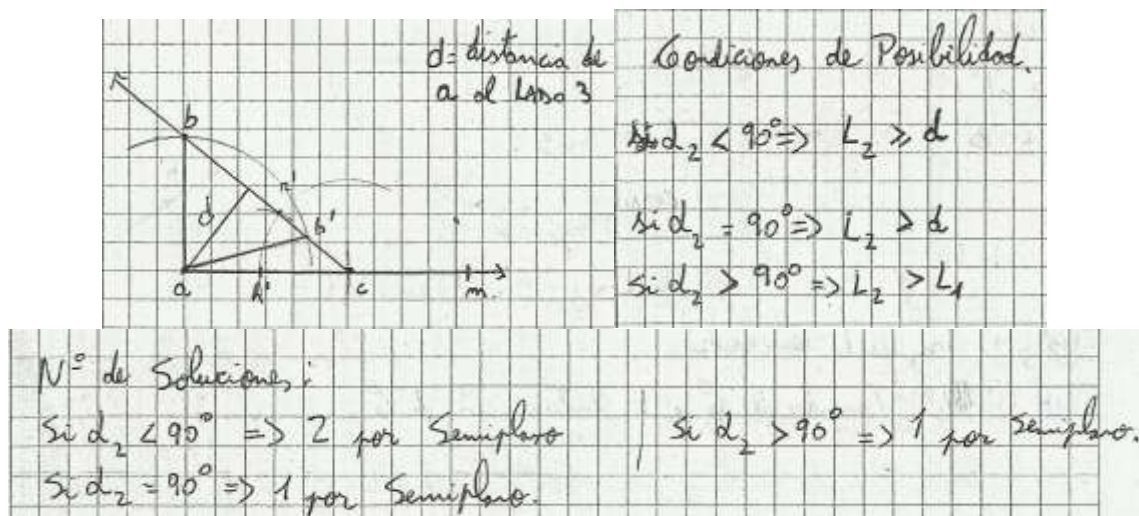 d= distancia de
a al LADO 3
b
d
r'
b'
a
h'
c
m.
Condiciones de Posibilidad.
si α₂ < 90° => L₂ ⩾ d
si α₂ = 90° => L₂ > d
si α₂ > 90° => L₂ > L₁
Nº de Soluciones:
Si α₂ < 90° => 2 por Semiplano | Si α₂ > 90° => 1 por Semiplano.
Si α₂ = 90° => 1 por Semiplano.